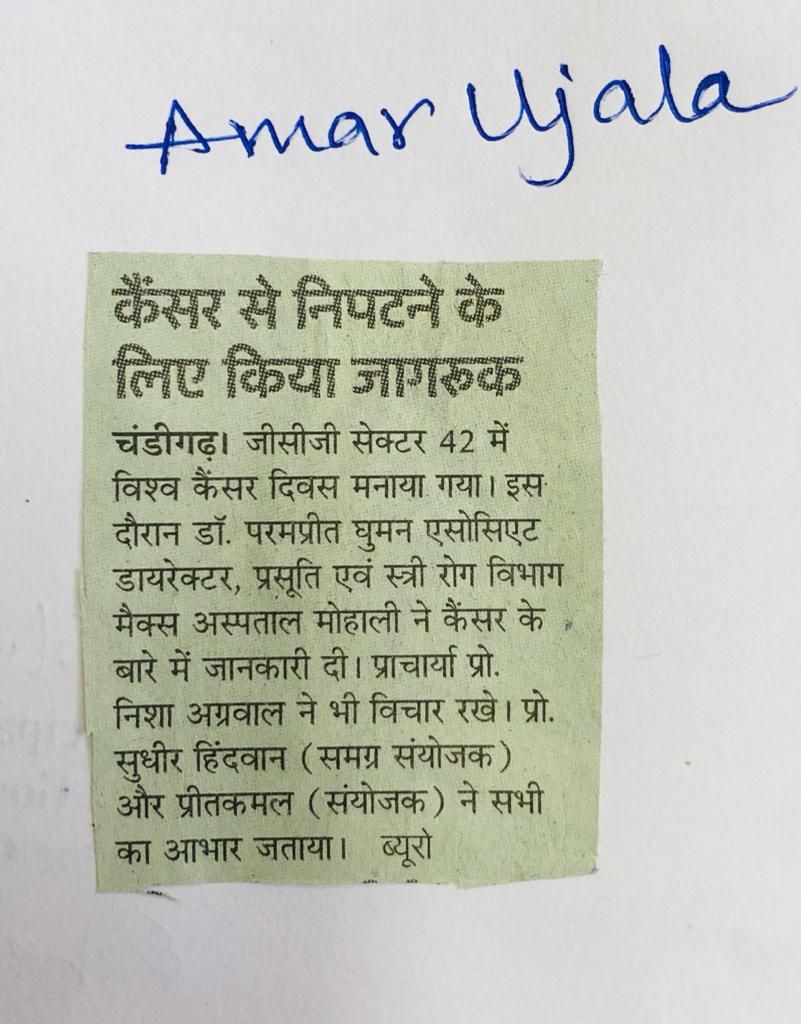 Amar Ujala
कैंसर से निपटने के
लिए किया जागरूक
चंडीगढ़। जीसीजी सेक्टर 42 में
विश्व कैंसर दिवस मनाया गया। इस
दौरान डॉ. परमप्रीत घुमन एसोसिएट
डायरेक्टर, प्रसूति एवं स्त्री रोग विभाग
मैक्स अस्पताल मोहाली ने कैंसर के
बारे में जानकारी दी। प्राचार्या प्रो.
निशा अग्रवाल ने भी विचार रखे। प्रो.
सुधीर हिंदवान (समग्र संयोजक)
और प्रीतकमल (संयोजक) ने सभी
का आभार जताया। ब्यूरो